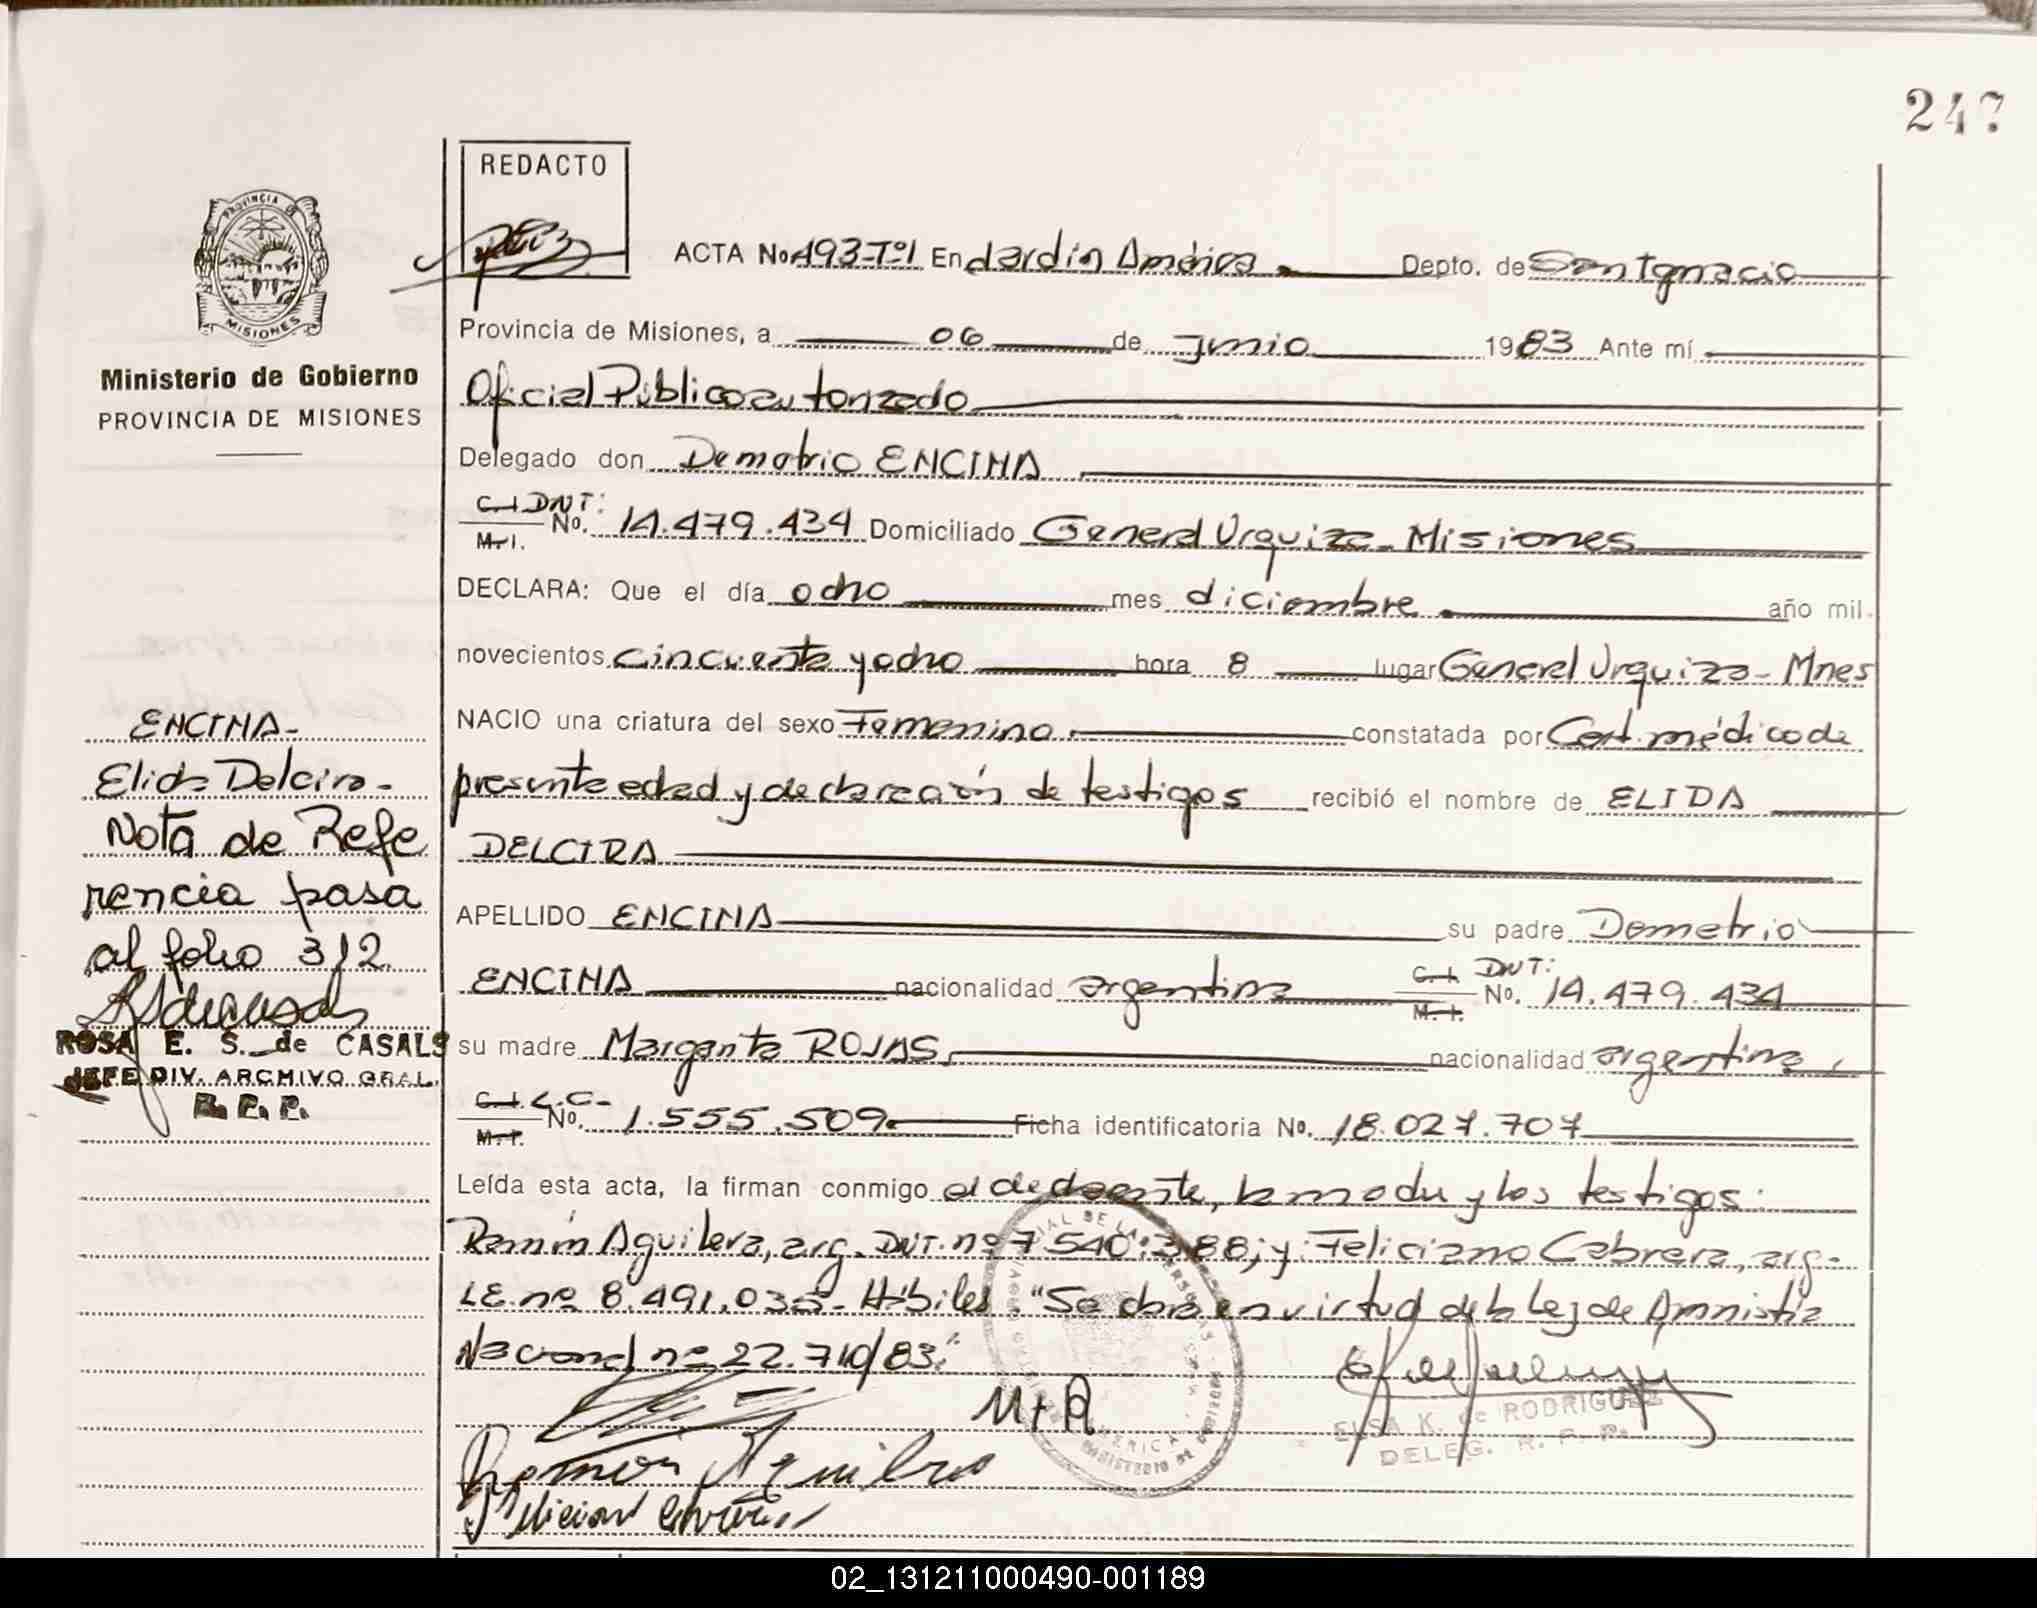 247
REDACTO
PROVINCIA
MISIONES
Ministerio de Gobierno
PROVINCIA DE MISIONES
ACTA No. 193-Tº1 En Jardín América Depto. de San Ignacio
Provincia de Misiones, a 06 de Junio 1983 Ante mí
Oficial Público autorizado
Delegado don Demetrio ENCINA
C.I. DNI: M.I. No. 14.479.434 Domiciliado General Urquiza - Misiones
DECLARA: Que el día ocho mes diciembre año mil
novecientos cincuenta y ocho hora 8 lugar General Urquiza - Mnes
NACIO una criatura del sexo Femenino constatada por Cert. médico de
presunta edad y declaración de testigos recibió el nombre de ELIDA
DELCIRA
APELLIDO ENCINA su padre Demetrio
ENCINA nacionalidad argentina C.I. DNI: M.I. No. 14.479.434
su madre Margarita ROJAS, nacionalidad argentina,
C.I. L.C. M.I. No. 1.555.509 Ficha identificatoria No. 18.027.707
Leída esta acta, la firman conmigo el declarante, la madre y los testigos:
Ramón Aguilera, arg. DNI. nº 7.540.388; y Feliciano Cabrera, arg.
LE. nº 8.491.035- Hábiles "Se labra en virtud de la Ley de Amnistía
Nacional nº 22.710/83."
M+R
Ramon Aguilera
ELSA K. de RODRIGUEZ
DELEG. R. P. P.
ENCINA-
Elida Delcira-
Nota de Refe
rencia pasa
al folio 312
ROSA E. S. de CASALS
JEFE DIV. ARCHIVO GRAL.
R. P. P.
02_131211000490-001189